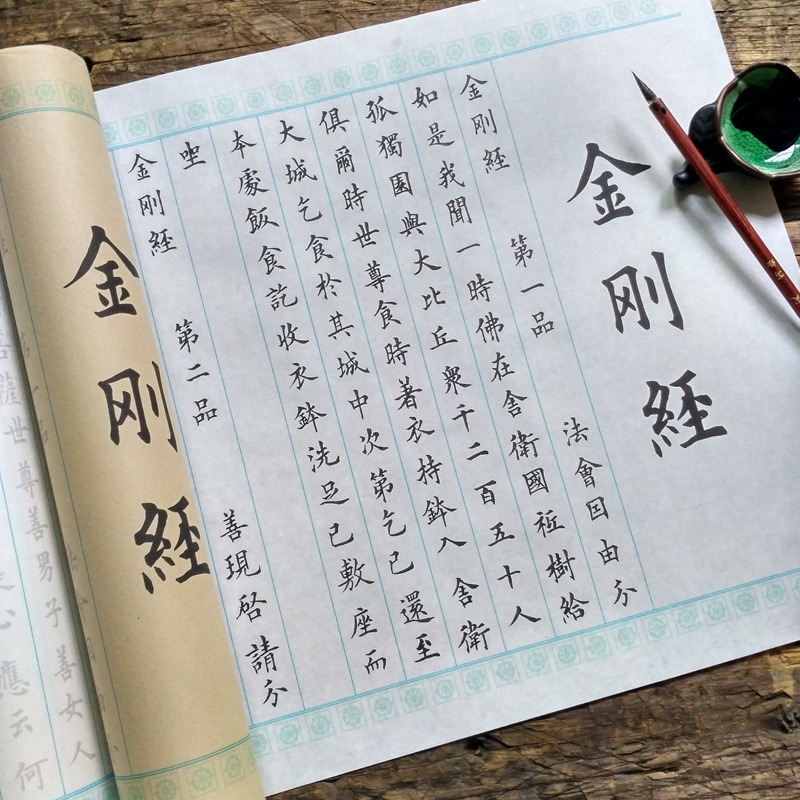 金刚経
金刚経 第一品 法會囙由分
如是我聞一時佛在舍衛國祇樹給
孤獨園與大比丘衆千二百五十人
俱爾時世尊食時著衣持鉢入舍衛
大城乞食於其城中次第乞已還至
本處飯食訖收衣鉢洗足已敷座而
坐
金刚経 第二品 善現啓請分
金刚経
薩世尊善男子善女人
心應云何